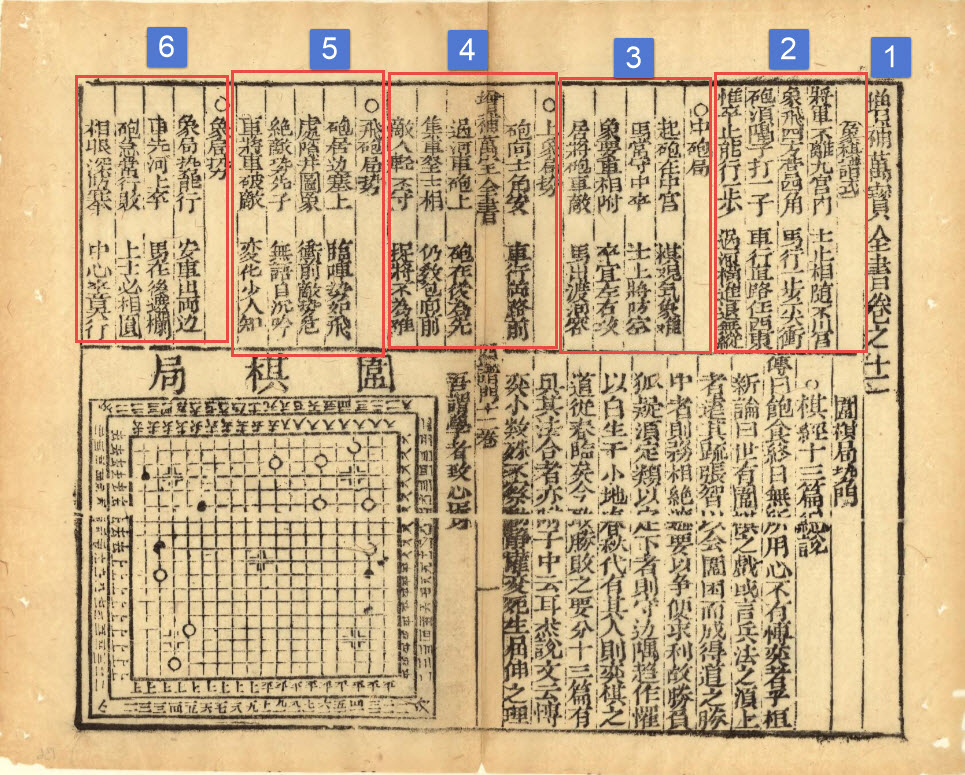 1
2
3
4
5
6
增補萬寶全書卷之十二
象棋譜式
將軍不離九宮內 士止相隨不出宮
象飛四方營四角 馬行一步一尖衝
砲須隔子打一子 車行直路任西東
惟卒止能行一步 過河橫進退無縱
○中砲局
起砲在中宮 棋觀氣象雄
馬常守中卒 士上將防空
象要車相附 卒宜左右攻
居將砲車敵 馬出渡河
○上象局势
砲向士角安 車行兩路前
過河車砲上 砲在後為先
集車堅士相 仍教包廂前
敵人輕不守 捉將不為難
○飛砲局势
砲居邊塞上 臨陣勢如飛
處陷井圖象 衝前敵勢危
絕敵安死子 無語自沉吟
車將軍破敵 變化少人知
○象局势
象局势能行 安車出两边
車共河上卒 馬在後遮欄
砲急常行敗 上士必相圓
相眼深防塞 中心卒莫行
圍棋局势門
○棋經十三篇總說
傳曰飽食終日無所用心不有博奕者乎桓
新論曰世有圍棋之戲或言兵法之類上
者遠其疏張智以會圍困而成得道之勝
中者則務相絕遮要以爭便求利故勝負
狐疑須定類以定下者則守边隅趨作罹
以白生于小地春秋代有其人則奕棋之
道從春臨矣今取勝敗之要分十三篇有
與其法合者亦附于中云耳說文云博
奕小数殊不察動靜權变死生屈伸之理
吾謂學者致心焉
增補萬宝全書
棋譜門十二卷
一
圍棋局